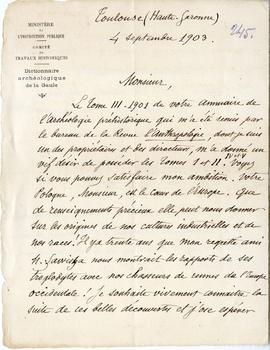 MINISTÈRE
DE
L'INSTRUCTION PUBLIQUE
COMITÉ
DES
TRAVAUX HISTORIQUES
Dictionnaire
archéologique
de la Gaule
Toulouse (Haute-Garonne)
245.
4 septembre 1903.
Monsieur,
Le tome III-1901 de votre annuaire de
l'Archéologie préhistorique qui m'a été remis par
le bureau de la Revue l'anthropologie, dont je suis
un des propriétaires et des directeurs, m'a donné un
vif désir de posséder les tomes I et II. Voyez
si vous pouvez satisfaire mon ambition. Votre
Pologne, Monsieur, est le cœur de l'Europe. Que
de renseignements précieux elle peut nous donner
sur les origines de nos cultures industrielles et de
nos races! Il y a trente ans que mon regretté ami
nous montrait les rapports de ses
troglodytes avec nos chasseurs de rennes de l'Europe
occidentale! Je souhaite vivement connaître la
suite de ces belles découvertes et j'ose espérer